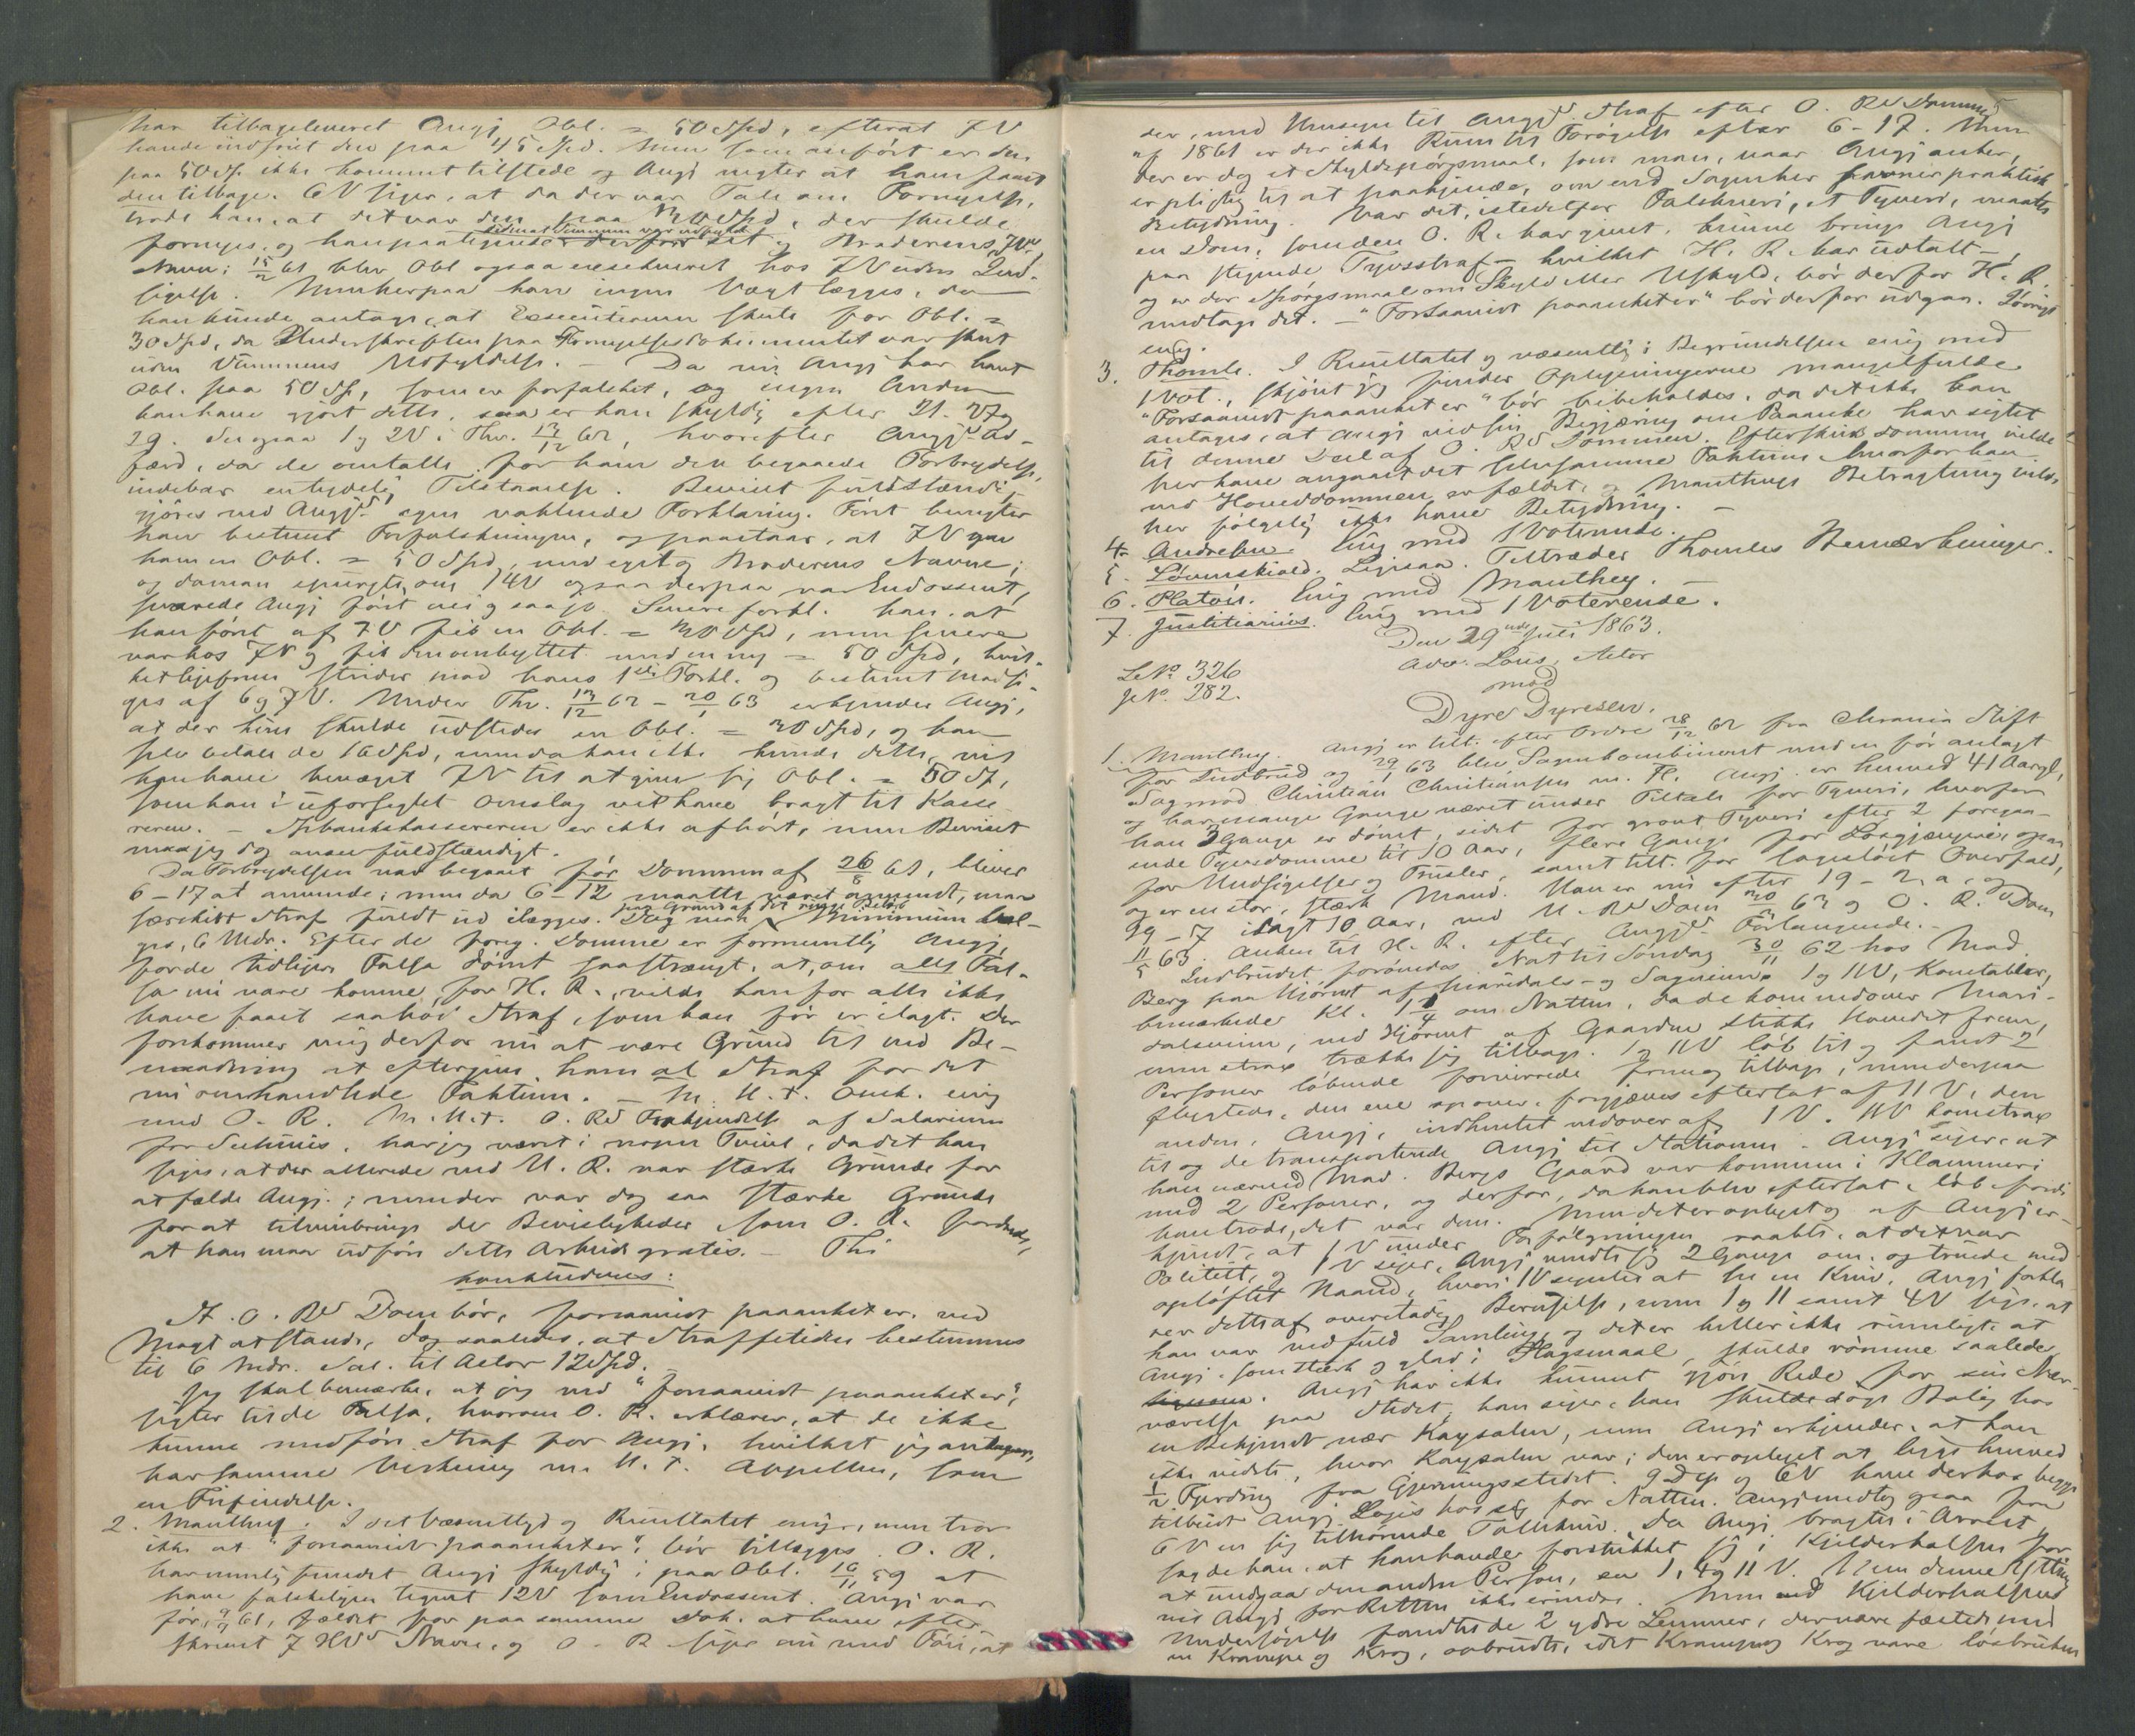 har tilbageleveret Angj. Obl. = 50 Spd, efterat 7 V
havde indfriet den paa 45 Spd. Men som anført er den
paa 50 Sp. ikke kommet tilstede og Angj negter at have faaet
den tilbage. 6 V siger, at da der var Tale om Fornyelse,
trode han, at det var den paa 30 Spd, der skulde
fornyes, og han paategnede derfor sit og Broderens, 7 Vs
Navn; 15/2 61 blev Obl ogsaa exekveret hos 7 V uden Ind-
sigelse. Men herpaa kan ingen Vægt lægges, da
han kunde antage, at Executionen skete for Obl. =
30 Spd, da Underskriften paa Fornyelsesdokumentet var skeet
uden Summens Udfyldelse. – Da nu Angj har havt
Obl. paa 50 Sp, som er forfalsket, og ingen Anden
kan have gjort dette, saa er han skyldig efter 21. 7 og
29. Se ogsaa 1 og 2 V i Thv. 13/12 62, hvorefter Angjs Ad-
færd, da de omtalte for ham den begaaede Forbrydelse,
indebar entydelig Tilstaaelse. Beviset fuldstændig-
gjøres ved Angjs egen vaklende Forklaring. Først benegter
han bestemt Forfalskningen, og paastaar, at 7 V gav
ham en Obl. = 50 Spd, med eget og Broderens Navne;
og da man spurgte, om 14 V ogsaa derpaa var Endossent,
svarede Angj først nei og saa jo. Senere forkl. han, at
han først af 7 V fik en Obl. = 30 Spd, men senere
var hos 7 V og fik den ombyttet med en ny = 50 Spd, hvil-
ket ligefrem strider mod hans 1ste Forkl. og bestemt modsi-
ges af 6 og 7 V. Under Thv. 13/12 62 – 20/1 63 erkjender Angj,
at der kun skulde udstedes en Obl. = 30 Spd, og han
selv betale de 16 Spd, men da han ikke kunde dette, vil
han have bevæget 7 V til at give sig Obl. = 50 Sp,
som han i uforseglet Omslag vil have bragt til Kasse-
reren. – Bankkassereren er ikke afhørt, men Beviset
maa jeg dog anse fuldstændigt.
Da Forbrydelsen var begaaet før Dommen af 26/8 61, bliver
6–17 at anvende; men da 6–12 maatte været anvendt, maa
særskilt Straf fuldt ud ilægges. Dog maa Minimum væl-
ges, 6 Mdr. Efter de foreg. Domme er formentlig Angj,
for de tidligere Falsa dømt saa strængt, at, om alle Fal-
sa nu vare komne for H. R., vilde han for alle ikke
have faaet saa høi Straf, som han før er ilagt. Der
forekommer mig derfor nu at være Grund til ved Be-
naadning at eftergive ham al Straf for det
nu omhandlede Faktum. – M. H. t. Omk. enig
med O. R. M. H. t. O. Rs Frakjendelse af Salarium
for , har jeg været i nogen Tvivl, da det kan
siges, at der allerede ved U. R. var stærke Grunde for
at fælde Angj.; men der var dog saa stærke Grunde
for at tilveiebringe de Bevisligheder som O. R. fordrede,
at han maa udføre dette Arbeide gratis. – Thi
konkluderes:
At O. Rs Dom bør, forsaavidt paaanket er, ved
Magt at stande, dog saaledes, at Straffetiden bestemmes
til 6 Mdr. Sal. til Actor 12 Spd.
Jeg skal bemærke, at jeg ved "forsaavidt paaanket er",
sigter til de Falsa, hvorom O. R. erklærer, at de ikke
kunne medføre Straf for Angj, hvilket jeg antager,
har samme Virkning m. H. t. Appellen, som
en Frifindelse.
2. Manthey. I det Væsentlige og Resultatet enig, men tror
ikke at "forsaavidt paaanket er", bør tillægges. O. R.
har nemlig fundet Angj skyldig i paa Obl. 10/11 59 at
have falskeligen tegnet 12 V som Endossent. Angj var
før, 61, fældet for paa samme Dok. at have efter-
skrevet 7 XVs Navn, og O. R. siger nu med Føie, at
der, med Hensyn til Angjs Straf efter O. Rs Dommen
af 1861 er der ikke Rum til Forøgelse efter 6–17. Men
der er dog et Skyldspørgsmaal, som man, naar Angj anker,
er pligtig til at paakjende, om end Sagen her savner praktisk
Betydning. Var det, istedetfor Falskneri, et Tyveri, maatte
en Dom, som den O. R. har givet, kunne bringe Angj
paa stigende Tyvsstraf – hvilket H. R. har udtalt –
og er der Spørgsmaal om Skyld eller Uskyld, bør derfor H. R.
medtage det. – "Forsaavidt paaanket er" bør derfor udgaa. Forøvrigt
enig.
3. Thomle. I Resultatet og væsentlig i Begrundelsen enig med
1 Vot., skjønt jeg finder Oplysningerne mangelfulde.
"Forsaavidt paaanket er" bør bibeholdes, da det ikke kan
antages, at Angj ved sin Begjæring om Paaanke har sigtet
til denne Deel af O. Rs Dommen. Efterskrivt Dommen vilde
her have angaaet det selvsamme Faktum, hvorfor han
ved Hoveddommen er fældet, og Mantheys Betragtning vilde
her følgelig ikke have Betydning. –
4. Andresen. Enig med 1 Voterende.
5. Løvenskiold. Ligesaa. Tiltræder Thomles Bemærkninger.
6. Platou. Enig med Manthey. –
7. Justitiarius. Enig med 1 Voterende.
Den 29nde Juli 1863.
L No 326
J No. 282.
Adv. Lous, Actor
mod
Dyre Dyresen.
1. Manthey. Angj er tilt. efter Ordre 28/12 62 fra Chrania Stift
for Indbrud og 29/1 63 blev Sagen kombineret med en før anlagt
Sag mod Christian Christiansen m. Fl. Angj. er henved 41 Aar gl.,
og har mange Gange været under Tiltale for Tyveri, hvorfor
han 3 Gange er dømt, sidst for grovt Tyveri efter 2 foregaa-
ende Tyvsdomme til 10 Aar, flere Gange for Løsgjængeri, ogsaa
for Undsigelser og Trusler, samt tilt. for lageløst Overfald,
og er en stor, stærk Mand. Han er nu efter 19–2, a, og
29–7 ilagt 10 Aar, ved U. Rs Dom 63 og O. R.s Dom
11/5 63. Anken til H. R. efter Angjs Forlangende. –
Indbrudet forøvedes Nat til Søndag 30/11 62 hos Mad.
Berg paa Hjørnet af Maridals- og Sagveiene. 1 og 11 V, Konstabler,
bemærkede Kl. 1 1/4 om Natten, da de kom nedover Mari-
dalsveien, ved Hjørnet af Gaarden stikke Hovedet frem,
men strax trække sig tilbage. 1 og 11 V løb til og fandt 2
Personer løbende forvirrede frem og tilbage, men derpaa
flygtede, den ene opover, forgjæves eftersat af 11 V, den
anden, Angj, indhentet nedover af 1 V. 11 V kom strax
til og de transporterede Angj til Stationen. – Angj siger, at
han nærved Mad. Bergs Gaard var kommen i Klammeri
med 2 Personer, og derfor, da han blev eftersat, løb, fordi
han trode, det var dem. Men det er oplyst og af Angj er-
kjendt, at 1 V under Forfølgningen raabte, at det var
Politiet, og 1 V siger, Angj vendte sig 2 Gange om, og truede med
opløftet Haand, hvori 1 V syntes at se en Kniv. Angj forkla-
rer dette af overstadig Beruselse, men 1 og 11 samt 4 V sige, at
han var ved fuld Samling, og det er heller ikke rimeligt, at
Angj, som stærk og glad i Slagsmaal, skulde rømme saaledes.
Angj har ikke kunnet gjøre Rede for sin Nær-
værelse paa Stedet, han siger, han skulde søge Bolig hos
en Bekjendt nær Kaysalen, men Angj erkjender, at han
ikke vidste, hvor Kaysalen var; den er oplyst at ligge henved
1/2 Fjerding fra Gjerningsstedet. 9 Dep. og 6 V have derhos begge
tilbudt Angj Logis hos sig for Natten. Angj medtog ogsaa fra
6 V en sig tilhørende Tollekniv. Da Angj bragtes i Arrest,
sagde han, at han havde forstukket sig i Kjelderhalsen for
at undgaa den anden Person, se 1, 4 og 11 V. Men denne Yttring
vil Angj for Retten ikke erindre. Men ved Kjelderhalsens
Undersøgelse fandtes de 2 ydre Lemmer, der vare fæstede med
en Krampe og Krog, opbrudte, idet Krampe og Krog vare løsbrukne